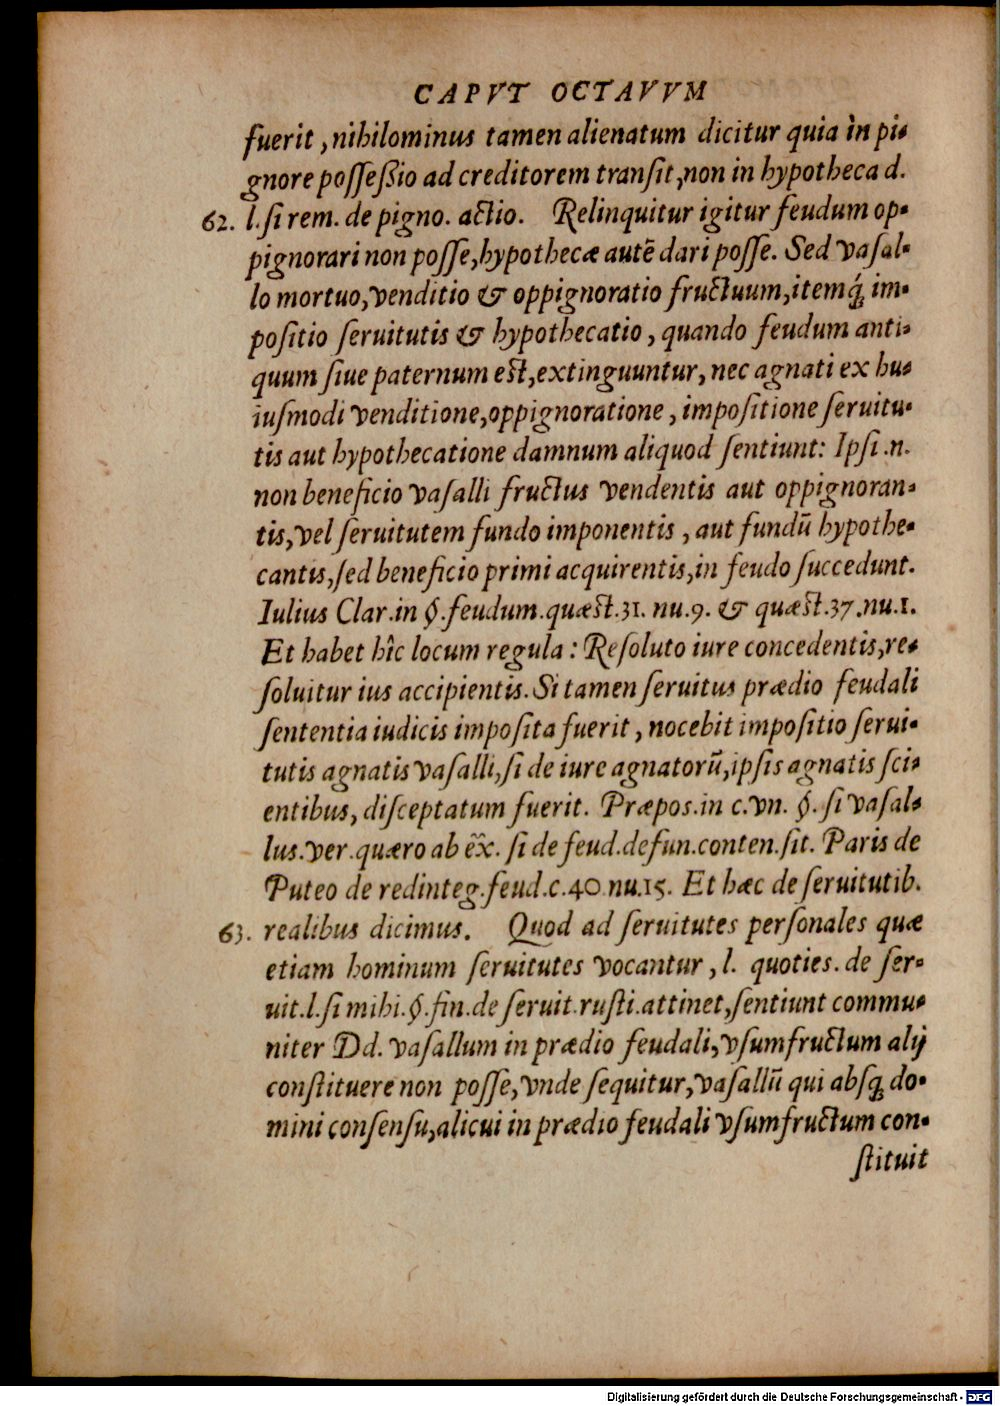 CAPVT OCTAVVM
fuerit, nihilominus tamen alienatum dicitur quia in pi-
gnore possessio ad creditorem transit, non in hypotheca d.
62. l. si rem. de pigno. actio. Relinquitur igitur feudum op-
pignorari non posse, hypothecæ autẽ dari posse. Sed vasal-
lo mortuo, venditio & oppignoratio fructuum, itemq́; im-
positio seruitutis & hypothecatio, quando feudum anti-
quum siue paternum est, extinguuntur, nec agnati ex hu-
iusmodi venditione, oppignoratione, impositione seruitu-
tis aut hypothecatione damnum aliquod sentiunt: Ipsi .n.
non beneficio vasalli fructus vendentis aut oppignoran-
tis, vel seruitutem fundo imponentis, aut fundũ hypothe-
cantis, sed beneficio primi acquirentis, in feudo succedunt.
Iulius Clar. in §. feudum. quæst. 31. nu. 9. & quæst. 37. nu. 1.
Et habet hîc locum regula: Resoluto iure concedentis, re-
soluitur ius accipientis. Si tamen seruitus prædio feudali
sententia iudicis imposita fuerit, nocebit impositio serui-
tutis agnatis vasalli, si de iure agnatorũ, ipsis agnatis sci-
entibus, disceptatum fuerit. Præpos. in c. vn. §. si vasal-
lus. ver. quæro ab ex̃. si de feud. defun. conten. sit. Paris de
Puteo de redinteg. feud. c. 40 nu. 15. Et hæc de seruitutib.
63. realibus dicimus. Quod ad seruitutes personales quæ
etiam hominum seruitutes vocantur, l. quoties. de ser-
uit. l. si mihi. §. fin. de seruit. rusti. attinet, sentiunt commu-
niter Dd. vasallum in prædio feudali, vsumfructum alij
constituere non posse, vnde sequitur, vasallũ qui absq; do-
mini consensu, alicui in prædio feudali vsumfructum con-
stituit
Digitalisierung gefördert durch die Deutsche Forschungsgemeinschaft - DFG